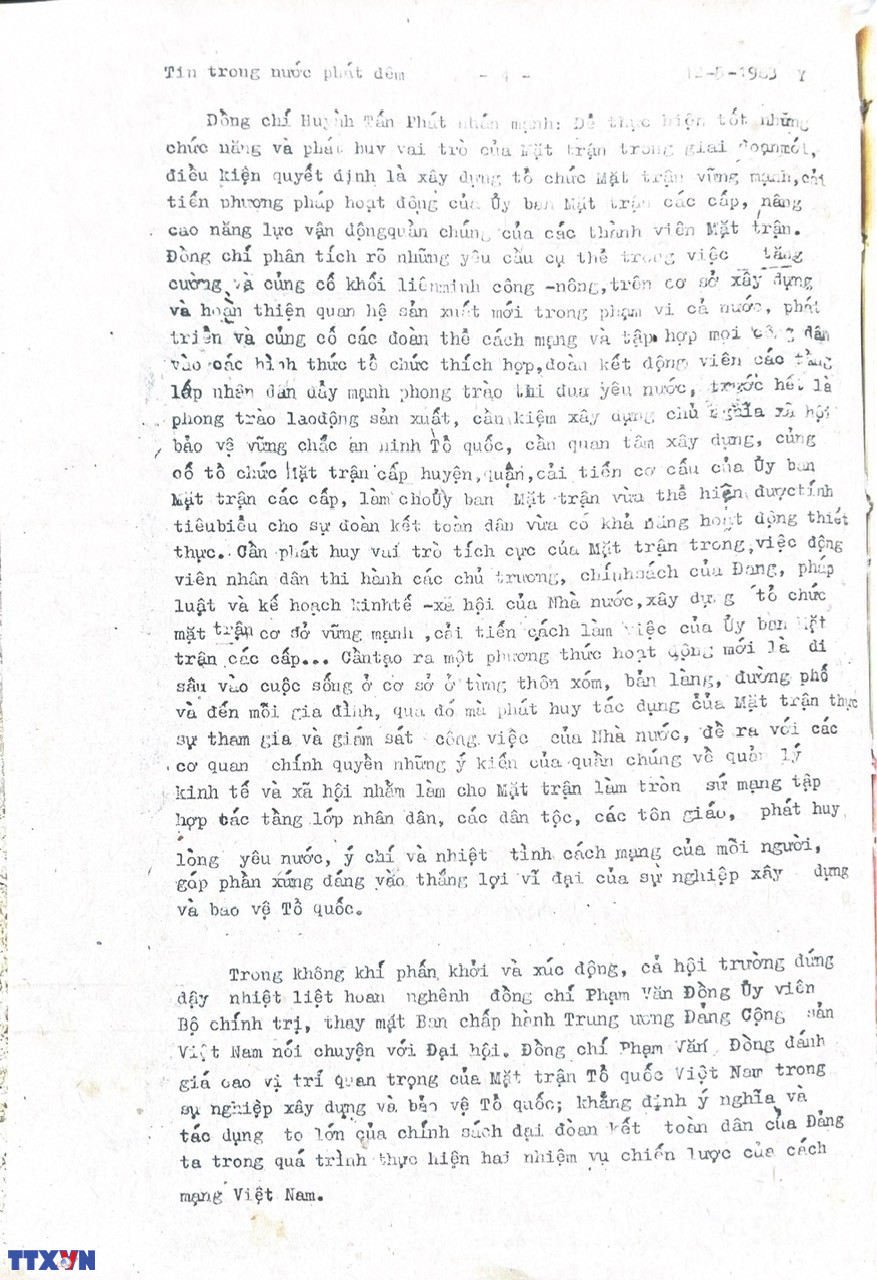 Tin trong nước phát đêm - 4 - 12-5-1983 Y
Đồng chí Huỳnh Tấn Phát nhấn mạnh: Để thực hiện tốt những
chức năng và phát huy vai trò của Mặt trận trong giai đoạnmới,
điều kiện quyết định là xây dựng tổ chức Mặt trận vững mạnh,cải
tiến phương pháp hoạt động của Ủy ban Mặt trận các cấp, nâng
cao năng lực vận độngquần chúng của các thành viên Mặt trận.
Đồng chí phân tích rõ những yêu cầu cụ thể trong việc tăng
cường và củng cố khối liênminh công -nông,trên cơ sở xây dựng
và hoàn thiện quan hệ sản xuất mới trong phạm vi cả nước, phát
triển và củng cố các đoàn thể cách mạng và tập hợp mọi công dân
vào các hình thức tổ chức thích hợp,đoàn kết động viên các tầng
lấp nhân dân đẩy mạnh phong trào thi đua yêu nước, trước hết là
phong trào laođộng sản xuất, cần kiệm xây dựng chủ nghĩa xã hội
bảo vệ vững chắc an ninh Tổ quốc, cần quan tâm xây dựng, củng
cố tổ chức Mặt trận cấp huyện,quận,cải tiến cơ cấu của Ủy ban
Mặt trận các cấp, làm choỦy ban Mặt trận vừa thể hiện đượctính
tiêubiểu cho sự đoàn kết toàn dân vừa có khả năng hoạt động thiết
thực. Cần phát huy vai trò tích cực của Mặt trận trong việc động
viên nhân dân thi hành các chủ trương, chínhsách của Đảng, pháp
luật và kế hoạch kinhtế -xã hội của Nhà nước,xây dựng tổ chức
mặt trận cơ sở vững mạnh ,cải tiến cách làm việc của Ủy ban Mặt
trận các cấp... Cầntạo ra một phương thức hoạt động mới là đi
sâu vào cuộc sống ở cơ sở ở từng thôn xóm, bản làng, đường phố
và đến mỗi gia đình, qua đó mà phát huy tác dụng của Mặt trận thực
sự tham gia và giám sát công việc của Nhà nước, đề ra với các
cơ quan chính quyền những ý kiến của quần chúng về quản lý
kinh tế và xã hội nhằm làm cho Mặt trận làm tròn sứ mạng tập
hợp các tầng lớp nhân dân, các dân tộc, các tôn giáo, phát huy
lòng yêu nước, ý chí và nhiệt tình cách mạng của mỗi người,
góp phần xứng đáng vào thắng lợi vĩ đại của sự nghiệp xây dựng
và bảo vệ Tổ quốc.
Trong không khí phấn khởi và xúc động, cả hội trường đứng
dậy nhiệt liệt hoan nghênh đồng chí Phạm Văn Đồng Ủy viên
Bộ chính trị, thay mặt Ban chấp hành Trung ương Đảng Cộng sản
Việt Nam nói chuyện với Đại hội. Đồng chí Phạm Văn Đồng đánh
giá cao vị trí quan trọng của Mặt trận Tổ quốc Việt Nam trong
sự nghiệp xây dựng và bảo vệ Tổ quốc; khẳng định ý nghĩa và
tác dụng to lớn của chính sách đại đoàn kết toàn dân của Đảng
ta trong quá trình thực hiện hai nhiệm vụ chiến lược của cách
mạng Việt Nam.
TTXVN